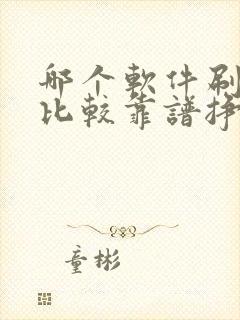 哪个軟件刷
比較靠譜掙
童彬